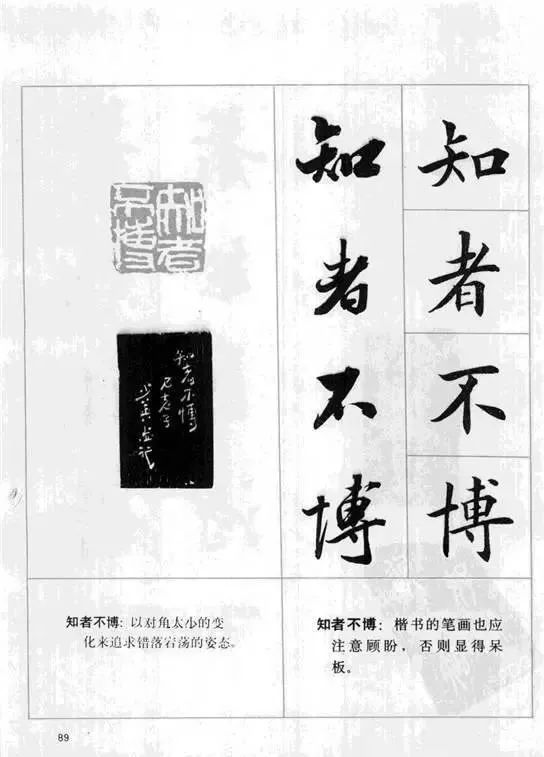 知者不博
知者不博
知者
不博
知者不博
知者不博：以对角太小的变
化来追求错落宕荡的姿态。
知者不博：楷书的笔画也应
注意顾盼，否则显得呆
板。
89